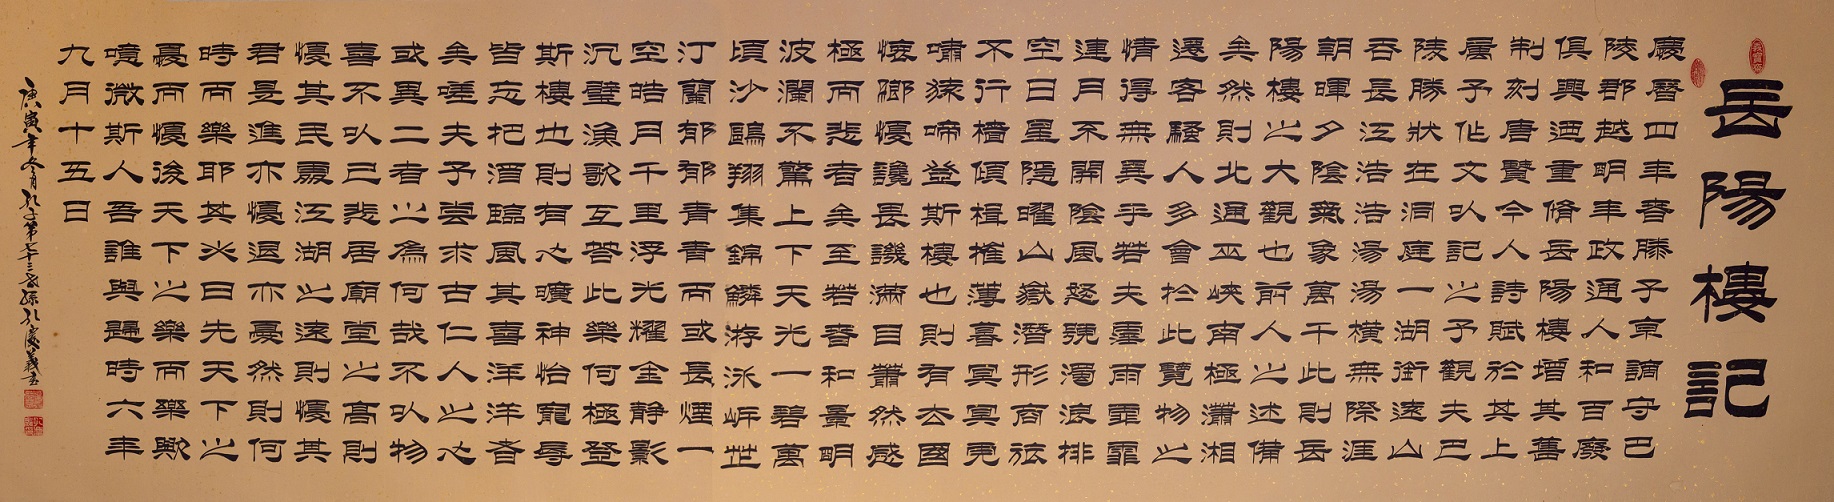 岳陽樓記
慶曆四年春滕子京謫守巴
陵郡越明年政通人和百廢
俱興迺重脩岳陽樓增其舊
制刻唐賢今人詩賦於其上
屬予作文以記之予觀夫巴
陵勝狀在洞庭一湖銜遠山
吞長江浩浩湯湯橫無際涯
朝暉夕陰氣象萬千此則岳
陽樓之大觀也前人之述備
矣然則北通巫峽南極瀟湘
遷客騷人多會於此覽物之
情得無異乎若夫霪雨霏霏
連月不開陰風怒號濁浪排
空日星隱曜山嶽潛形商旅
不行檣傾楫摧薄暮冥冥虎
嘯猿啼登斯樓也則有去國
懷鄉憂讒畏譏滿目蕭然感
極而悲者矣至若春和景明
波瀾不驚上下天光一碧萬
頃沙鷗翔集錦鱗游泳岸芷
汀蘭郁郁青青而或長煙一
空皓月千里浮光耀金静影
沉璧漁歌互答此樂何極登
斯樓也則有心曠神怡寵辱
皆忘把酒臨風其喜洋洋者
矣嗟夫予嘗求古仁人之心
或異二者之為何哉不以物
喜不以己悲居廟堂之高則
憂其民處江湖之遠則憂其
君是進亦憂退亦憂然則何
時而樂耶其必曰先天下之
憂而憂後天下之樂而樂歟
噫微斯人吾誰與歸時六年
九月十五日
庚寅年冬月孔子第七十三世孫孔慶義書